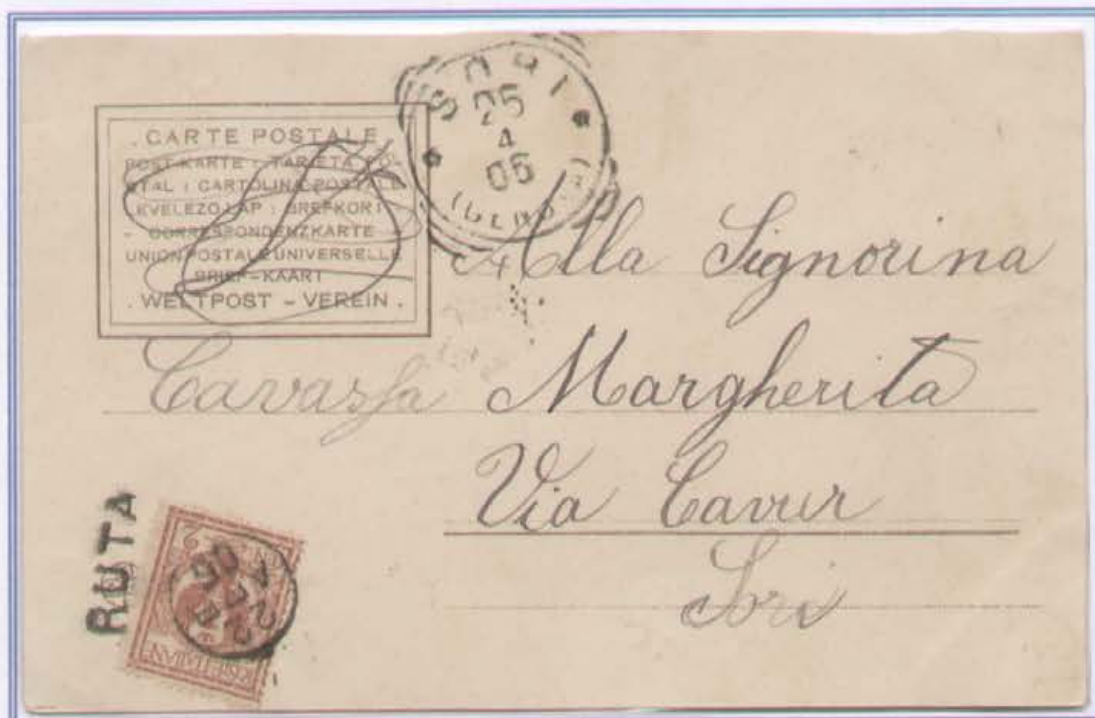 SORI
25
4
06
(GENOVA)
. CARTE POSTALE .
POST-KARTE : TARJETA PO-
STAL : CARTOLINA POSTALE
LEVELEZO LAP : BREFKORT
- CORRESPONDENZKARTE -
UNION POSTALE UNIVERSELLE
BRIEF-KAART
. WELTPOST - VEREIN .
Alla Signorina
Cavassa Margherita
Via Cavur
Sori
RUTA